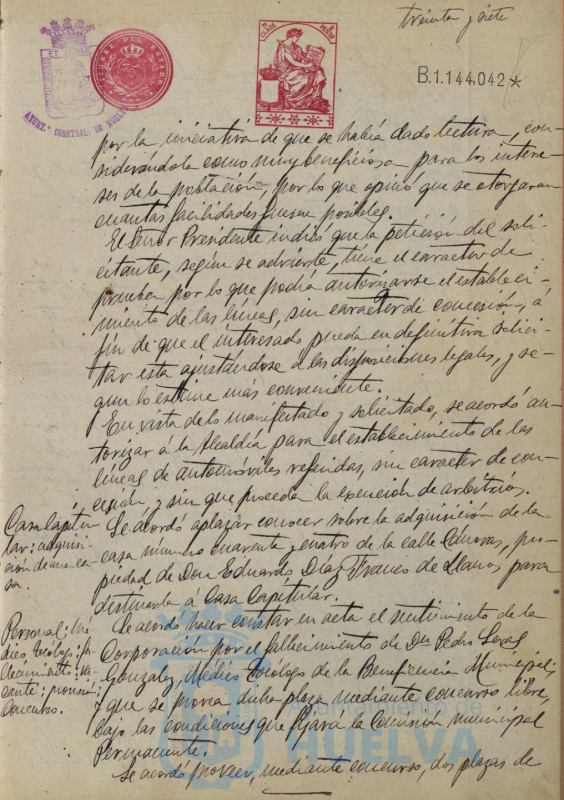 treinta y siete
TIMBRE DEL ESTADO
CLASE
B.1.144.042*
AYUNT.º CONSTNAL. DE HUELVA
por la iniciativa de que se había dado lectura, con-
siderándola como muy beneficiosa para los intere-
ses de la población, por lo que opinó que se otorgaran
cuantas facilidades fuesen posibles.
El Señor Presidente indicó que la petición del soli-
citante, según se advierte, tiene el caracter de
prueba por lo que podía autorizarse el estableci-
miento de las líneas, sin caracter de concesión, á
fin de que el interesado pueda en definitiva solici-
tar esta ajustándose a las disposiciones legales, y se-
gun lo estime más conveniente.
En vista de lo manifestado y solicitado, se acordó au-
torizar á la Alcaldía para el establecimiento de las
líneas de automóviles referidas, sin caracter de con-
cesión y sin que proceda la exención de arbitrios.
Casa Capitu-
lar: adquisi-
ción de una ca-
sa.
Se acordó aplazar conocer sobre la adquisición de la
casa número cuarenta y cuatro de la calle Cánovas, pro-
piedad de Don Eduardo Díaz y Franco de Llanos, para
distinarla á Casa Capitular.
Personal: Mé-
dico tocólogo: fa-
llecimiento: va-
cante: provisión
concurso.
Se acordó hacer constar en acta el sentimiento de la
Corporación por el fallecimiento de Dn Pedro
Gonzalez, Médico Tocólogo de la Beneficencia Municipal,
y que se provea dicha plaza mediante concurso libre,
bajo las condiciones que fijará la Comisión municipal
Permanente.
Se acordó proveer, mediante concurso, dos plazas de
Ayuntamiento de
HUELVA